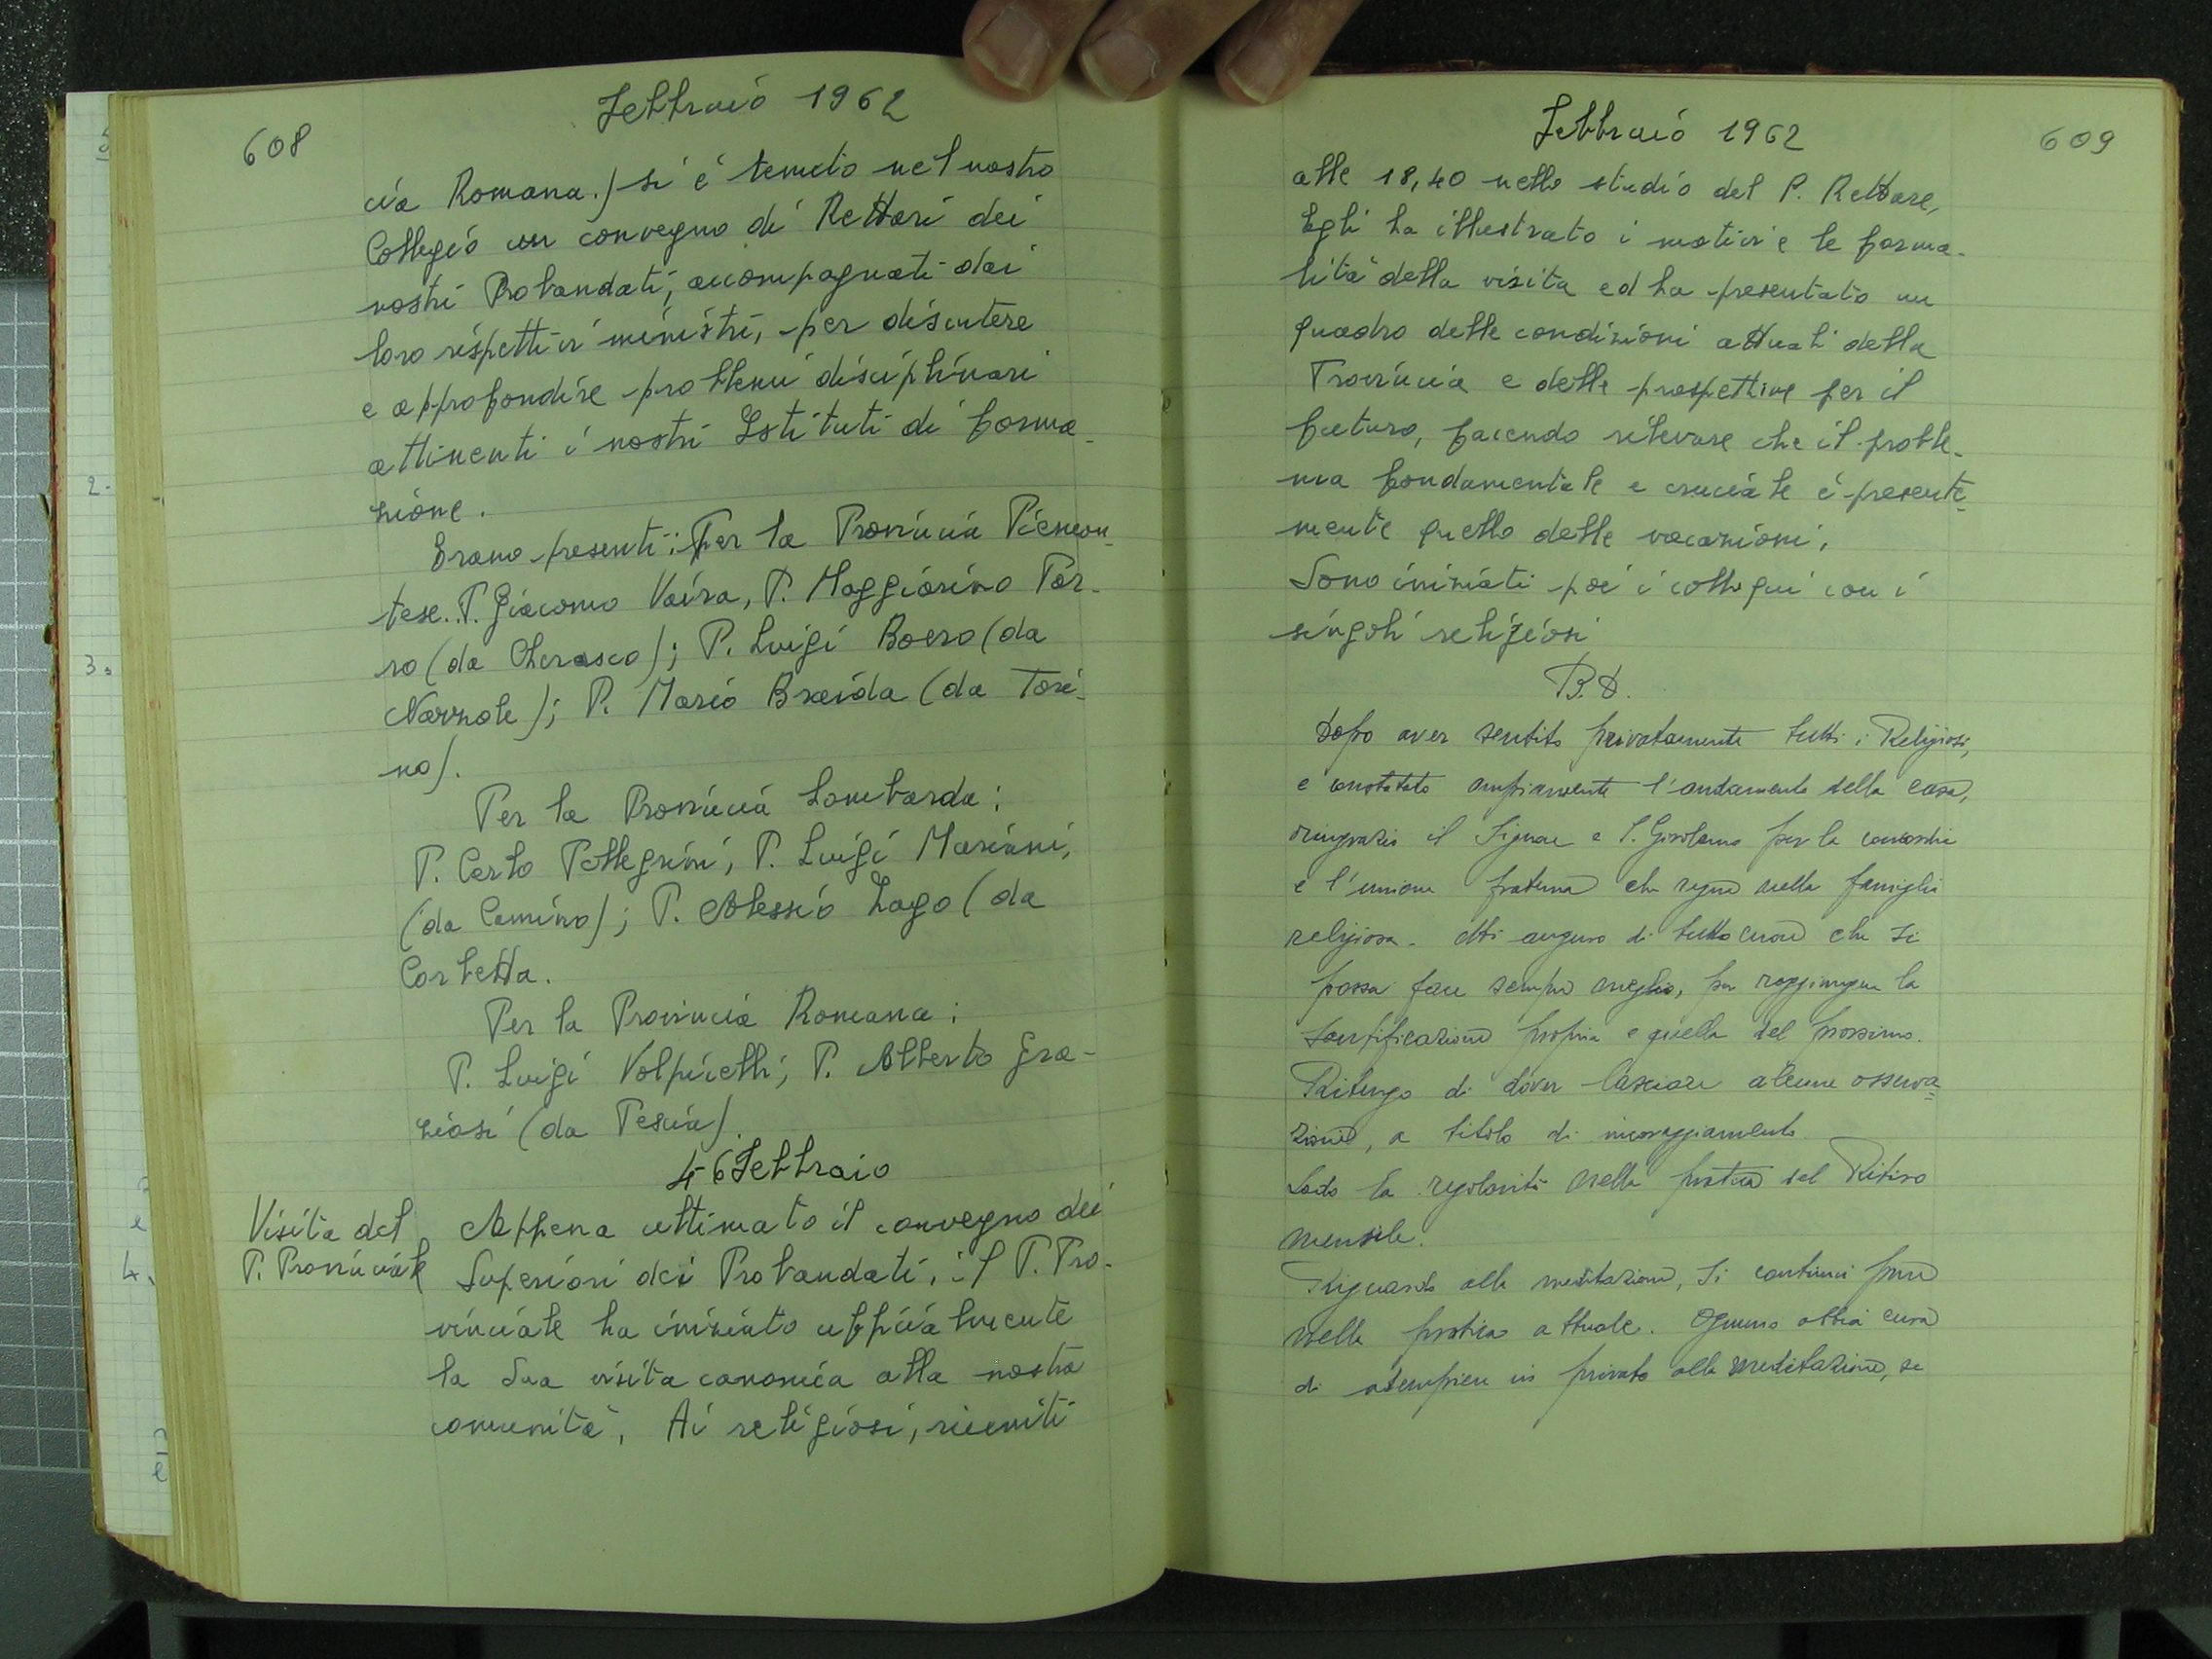 608
Febbraio 1962
cia Romana.) si è tenuto nel nostro
Collegio un convegno di Rettori dei
nostri Probandati, accompagnati dai
loro rispettivi ministri, per discutere
e approfondire problemi disciplinari
attinenti i nostri Istituti di forma-
zione.
Erano presenti: Per la Provincia Piemon-
tese. P. Giacomo Vaira, P. Maggiorino Por-
ro (da Cherasco); P. Luigi Boero (da
Narzole); P. Mario Braida (da Tori-
no).
Per la Provincia Lombarda:
P. Carlo Pellegrini, P. Luigi Mariani,
(da Camino); P. Alessio Zago (da
Corbetta.
Per la Provincia Romana:
P. Luigi Volpicelli; P. Alberto Gra-
ziosi (da Pescia)
4-6 Febbraio
Visita del
P. Provinciale
Appena ultimato il convegno dei
Superiori dei Probandati, il P. Pro-
vinciale ha iniziato ufficialmente
la Sua visita canonica alla nostra
comunità, Ai religiosi, riuniti
2.
3.
4.
Febbraio 1962
609
alle 18,40 nello studio del P. Rettore,
Egli ha illustrato i motivi e le forma-
lità della visita ed ha presentato un
quadro delle condizioni attuali della
Provincia e delle prospettive per il
futuro, facendo rilevare che il proble-
ma fondamentale e cruciale è presente-
mente quello delle vocazioni,
Sono iniziati poi i colloqui con i
singoli religiosi
B.D.
Dopo aver sentito privatamente tutti i Religiosi,
e constatato ampiamente l'andamento della casa,
ringrazio il Signore e S. Girolamo per la concordia
e l'unione fraterna che regna nella famiglia
religiosa. Mi auguro di tutto cuore che si
possa fare sempre meglio, per raggiungere la
santificazione propria e quella del prossimo.
Ritengo di dover lasciare alcune osserva=
zioni, a titolo di incoraggiamento.
Lodo la regolarità nella pratica del Ritiro
mensile.
Riguardo alla meditazione, si continui pure
nella pratica attuale. Ognuno abbia cura
di adempiere in privato alla meditazione, se